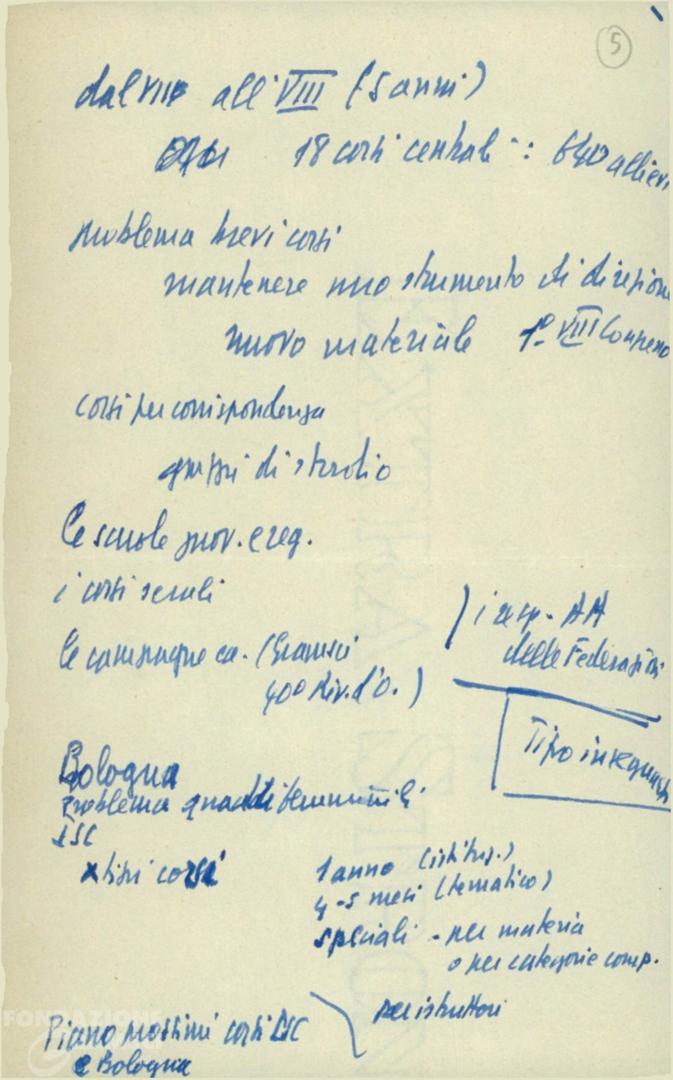 5
dal VIII all'VIII (5 anni)
18 corsi centrali: 640 allievi
problema brevi corsi
mantenere uno strumento di direzione
nuovo materiale 1º VIII Congresso
corsi per corrispondenza
gruppi di studio
le scuole prov. e reg.
i corsi serali
i resp. AA
delle Federazioni
le campagne (Gramsci
40º Riv. d'O.)
Tipo insegnante
Bologna
problema quadri femminili
ISC
x tipi corsi
1 anno (istitus.)
4-5 mesi (tematico)
speciali - per materia
o per categorie comp.
per istruttori
Piano prossimi corsi ISC
e Bologna
FONDAZIONE